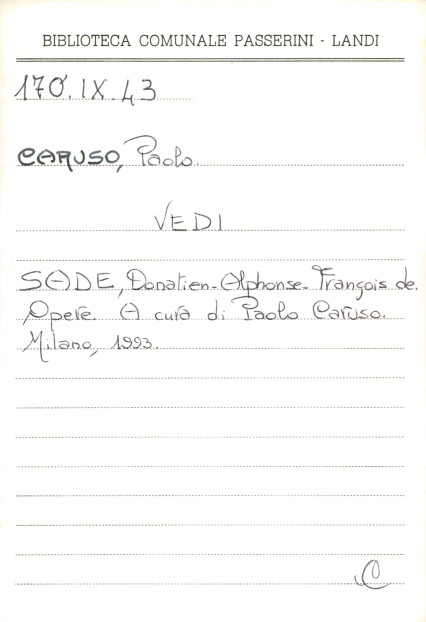 BIBLIOTECA COMUNALE PASSERINI - LANDI
170.IX.43
CARUSO, Paolo.
VEDI
SADE, Donatien-Alphonse-François de.
Opere. A cura di Paolo Caruso.
Milano, 1993.
C